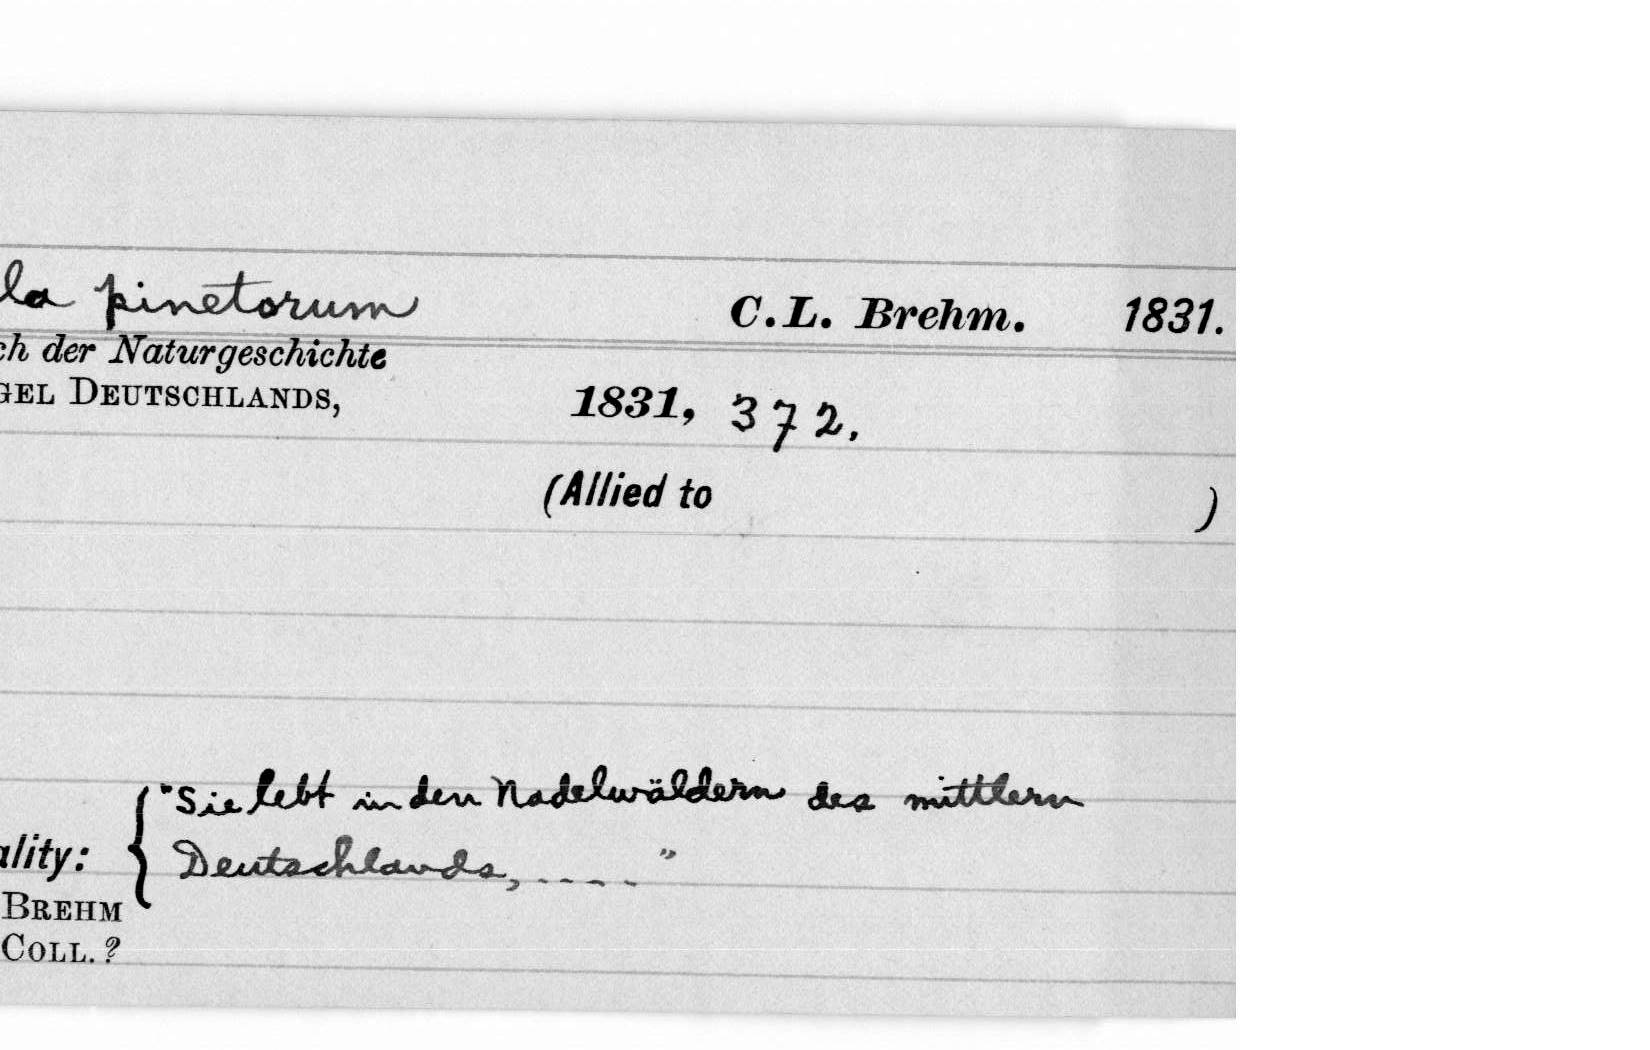 la pinetorum C.L. Brehm. 1831.
ch der Naturgeschichte
GEL DEUTSCHLANDS, 1831, 372.
(Allied to )
"Sie lebt in den Nadelwäldern des mittlern
ality: Deutschlands, .... "
BREHM
COLL.?